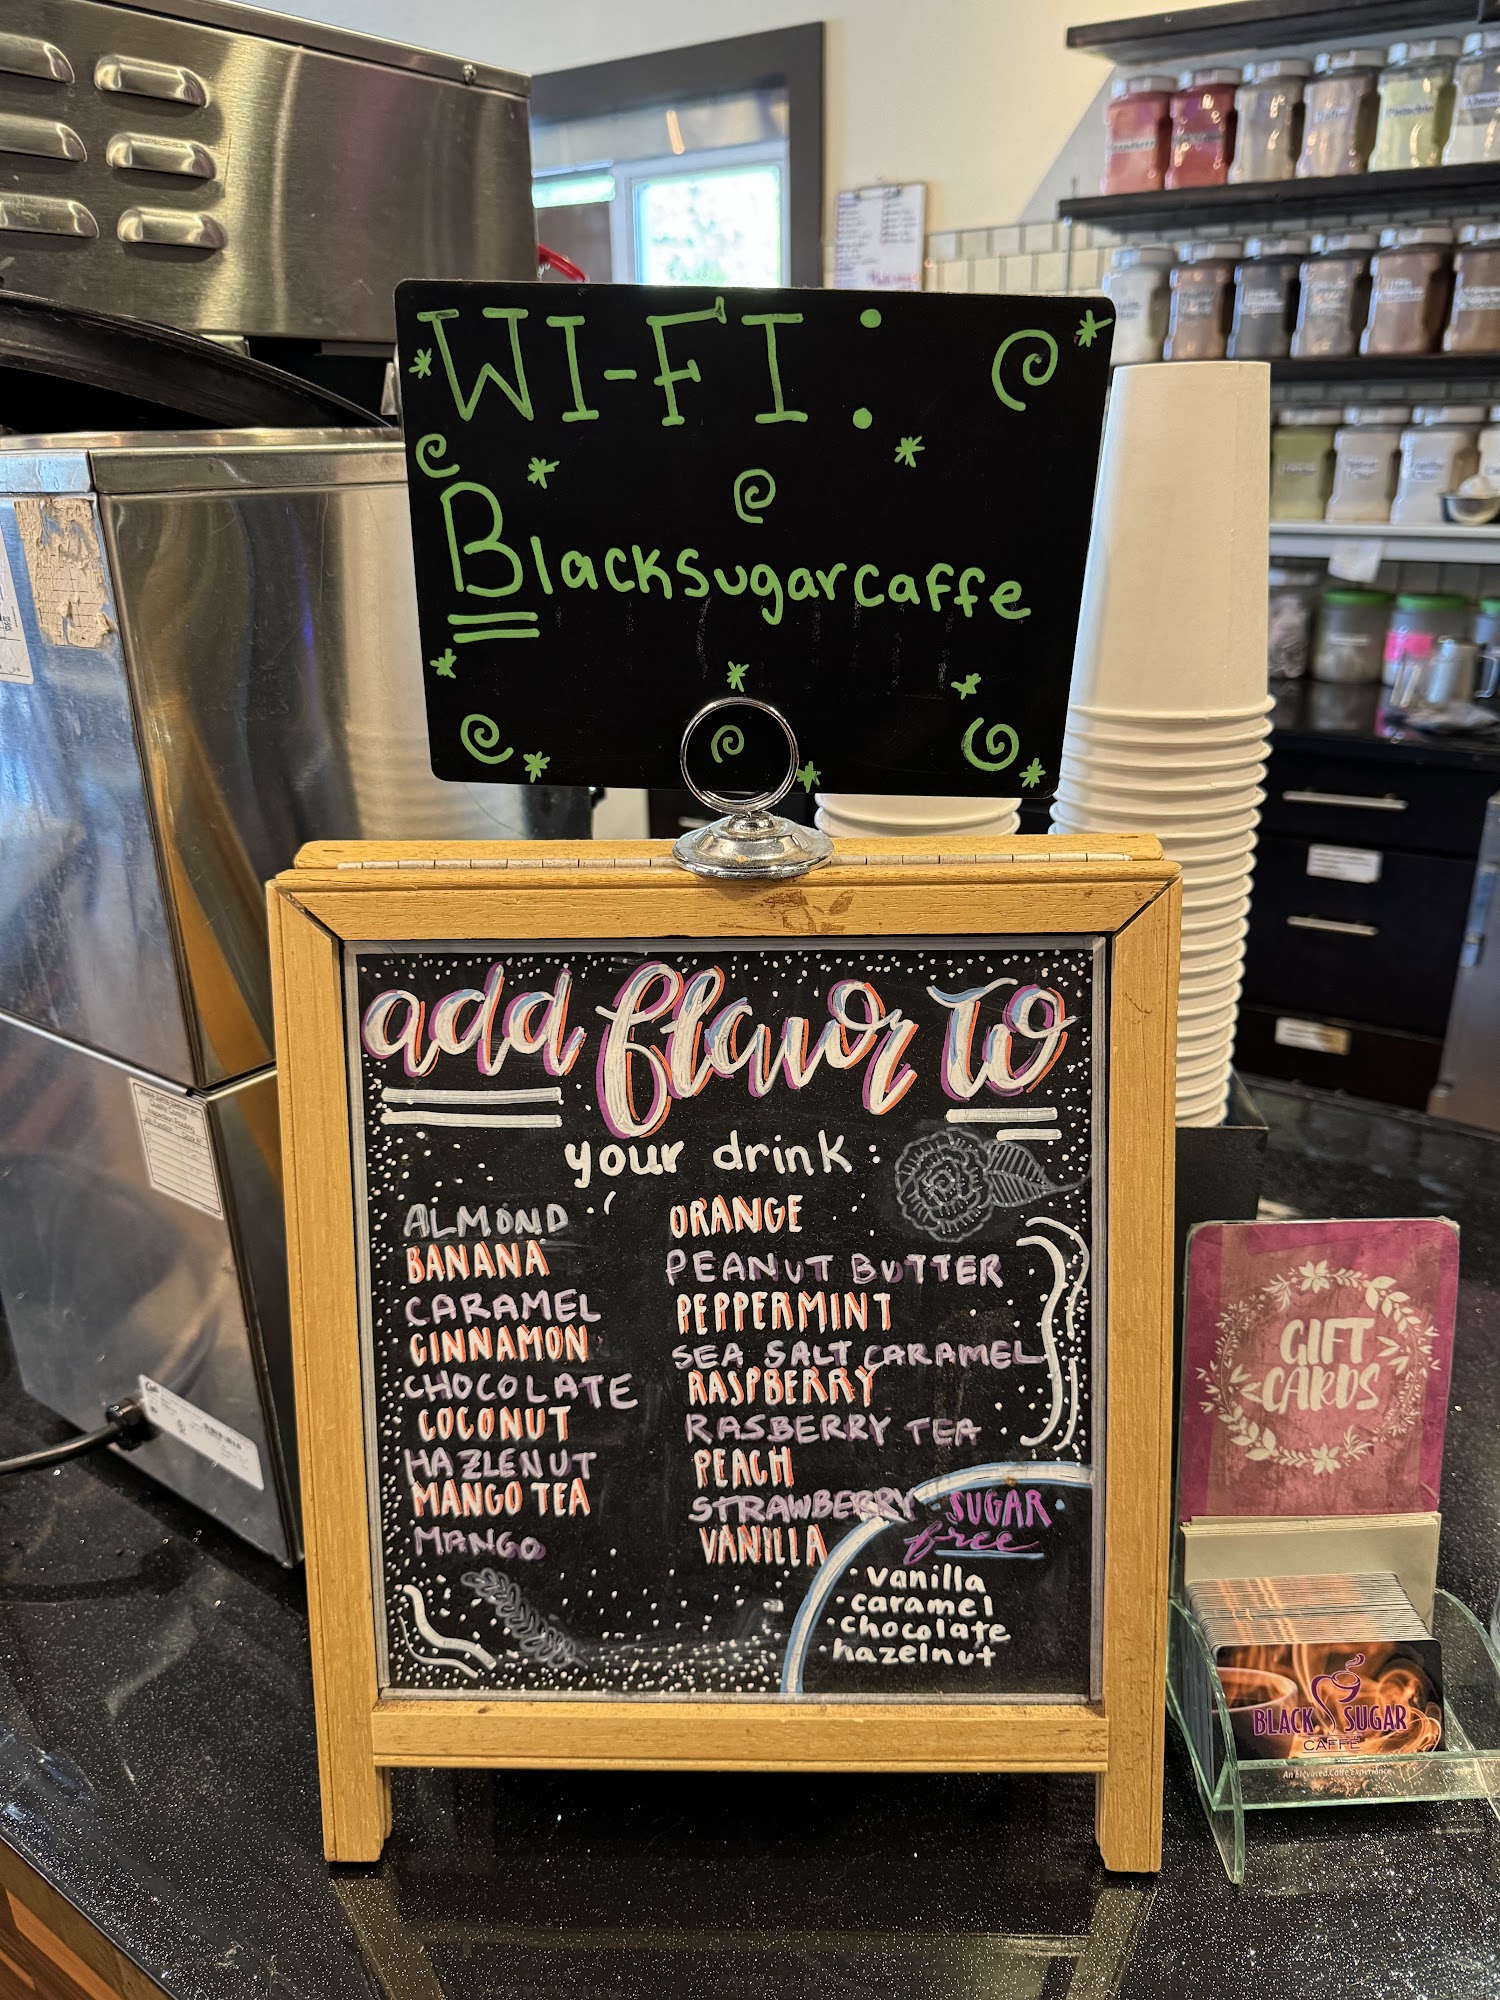 WI-FI:
Blacksugarcaffe
add flavor to
your drink:
ALMOND
BANANA
CARAMEL
CINNAMON
CHOCOLATE
COCONUT
HAZLENUT
MANGO TEA
MANGO
ORANGE
PEANUT BUTTER
PEPPERMINT
SEA SALT CARAMEL
RASPBERRY
RASBERRY TEA
PEACH
STRAWBERRY
VANILLA
SUGAR
free
· vanilla
· caramel
· chocolate
· hazelnut
GIFT
CARDS
BLACK SUGAR
CAFFÉ
An Elevated Caffe Experience